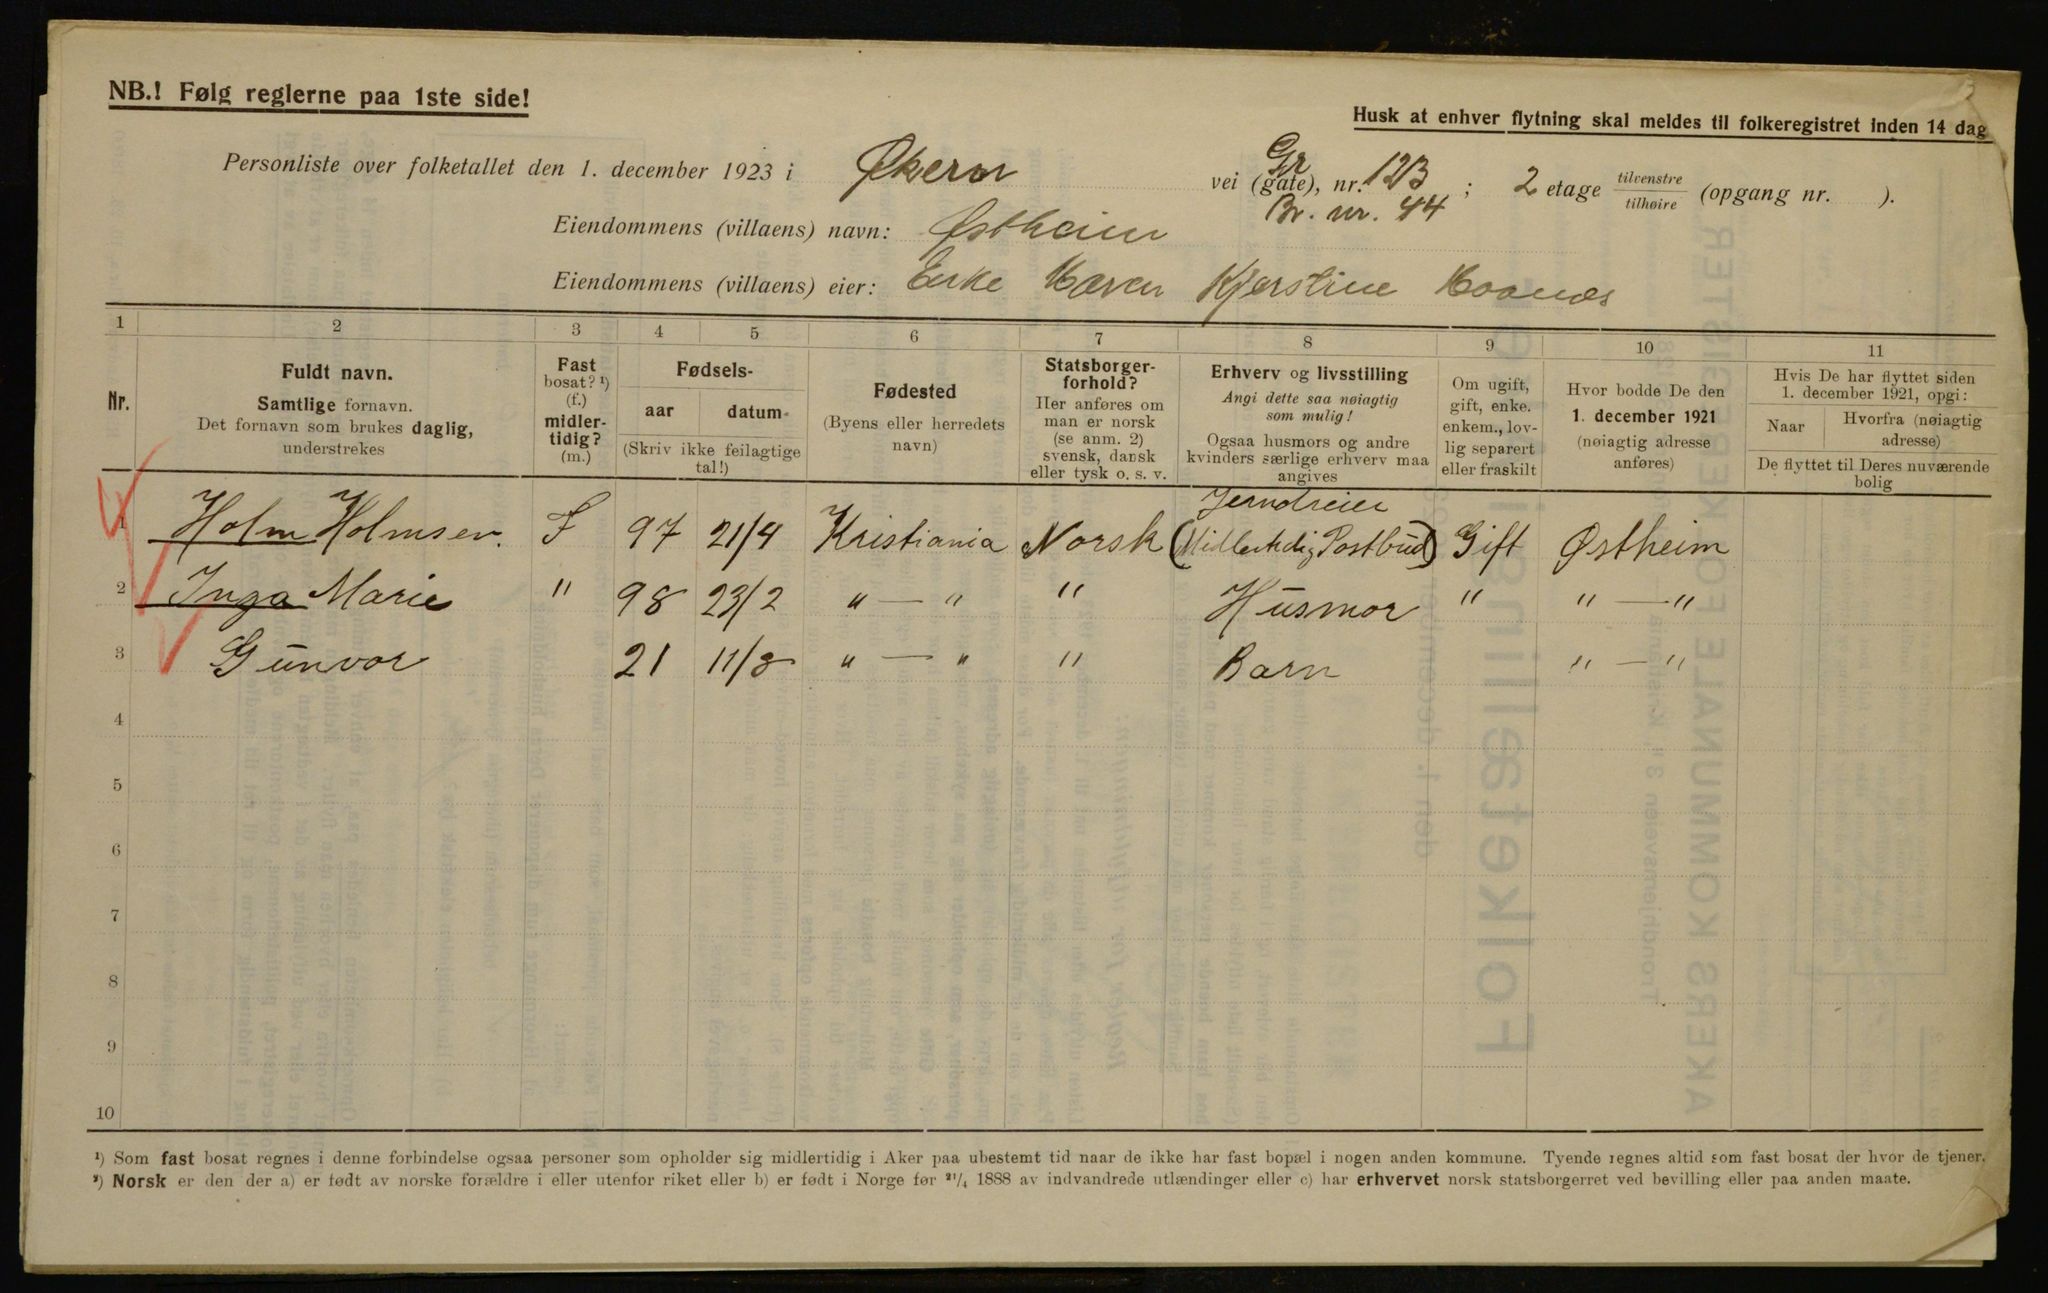 NB.! Følg reglerne paa 1ste side!
Husk at enhver flytning skal meldes til folkeregistret inden 14 dag
Personliste over folketallet den 1. december 1923 i Økern vei (gate), nr. 123 ; 2 etage tilvenstre tilhøire (opgang nr. ).
Gr
Br. nr. 44
Eiendommens (villaens) navn: Østheim
Eiendommens (villaens) eier: Enke Karen Kjerstine
1 2 3 4 5 6 7 8 9 10 11
Nr.
Fuldt navn.
Samtlige fornavn.
Det fornavn som brukes daglig,
understrekes
Fast
bosat? ¹)
(f.)
midler-
tidig?
(m.)
Fødsels-
aar datum
(Skriv ikke feilagtige
tal!)
Fødested
(Byens eller herredets
navn)
Statsborger-
forhold?
Her anføres om
man er norsk
(se anm. 2)
svensk, dansk
eller tysk o. s. v.
Erhverv og livsstilling
Angi dette saa nøiagtig
som mulig!
Ogsaa husmors og andre
kvinders særlige erhverv maa
angives
Om ugift,
gift, enke.
enkem., lov-
lig separert
eller fraskilt
Hvor bodde De den
1. december 1921
(nøiagtig adresse
anføres)
Hvis De har flyttet siden
1. december 1921, opgi:
Naar
Hvorfra (nøiagtig
adresse)
De flyttet til Deres nuværende
bolig
Jerndreier
1 Holm Holmsen. F 97 21/4 Kristiania Norsk (Midlertidig Postbud) Gift Østheim
2 Inga Marie " 98 23/2 " — " " Husmor " " — "
3 Gunvor 21 11/8 " — " " Barn " — "
4
5
6
7
8
9
10
¹) Som fast bosat regnes i denne forbindelse ogsaa personer som opholder sig midlertidig i Aker paa ubestemt tid naar de ikke har fast bopæl i nogen anden kommune. Tyende regnes altid som fast bosat der hvor de tjener.
²) Norsk er den der a) er født av norske forældre i eller utenfor riket eller b) er født i Norge før ²¹/₄ 1888 av indvandrede utlændinger eller c) har erhvervet norsk statsborgerret ved bevilling eller paa anden maate.